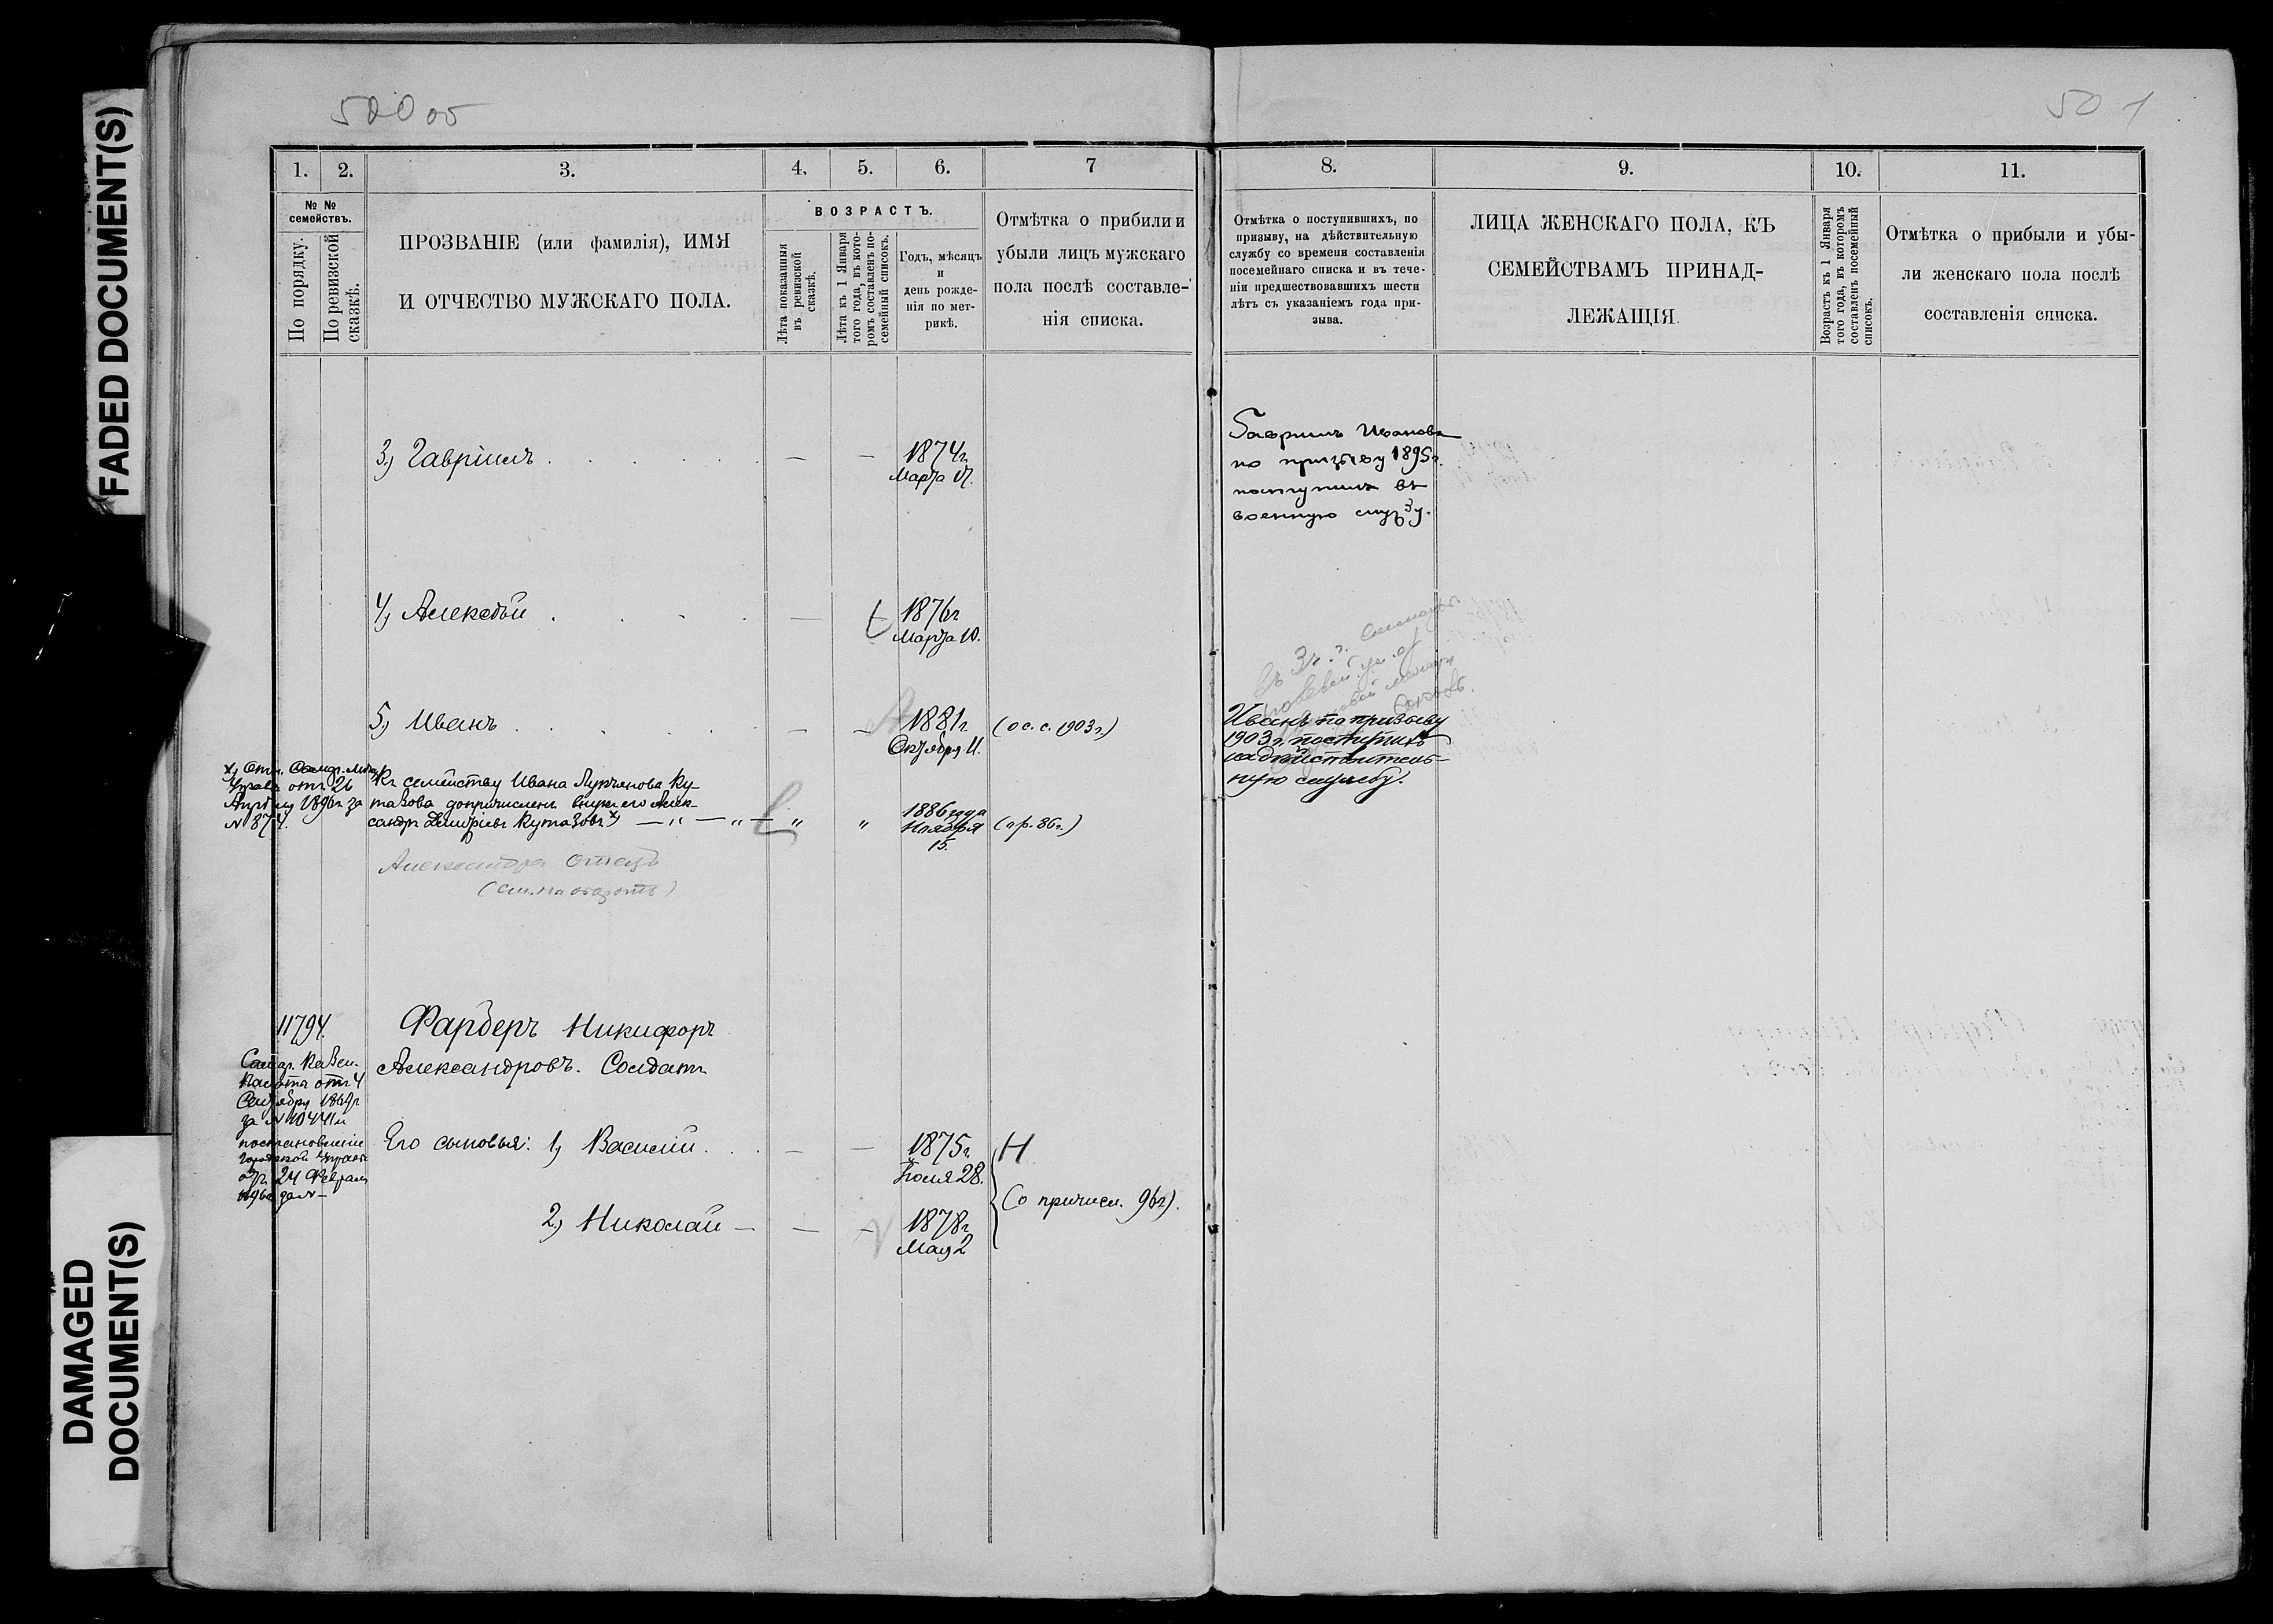 FADED DOCUMENT(S)
DAMAGED
DOCUMENT(S)
500 об
501
1.
2.
3.
4.
5.
6.
7
8.
9.
10.
11.
№ №
семействъ.
По порядку.
По ревизской
сказкѣ.
ПРОЗВАНІЕ (или фамилія), ИМЯ
И ОТЧЕСТВО МУЖСКАГО ПОЛА.
ВОЗРАСТЪ.
Лѣта показанныя
въ ревизской
сказкѣ.
Лѣта къ 1 Января
того года, въ кото-
ромъ составленъ по-
семейный списокъ.
Годъ, мѣсяцъ
и
день рожде-
нія по мет-
рикѣ.
Отмѣтка о прибыли и
убыли лицъ мужскаго
пола послѣ составле-
нія списка.
Отмѣтка о поступившихъ, по
призыву, на дѣйствительную
службу со времени составленія
посемейнаго списка и въ тече-
ніи предшествовавшихъ шести
лѣтъ съ указаніемъ года при-
зыва.
ЛИЦА ЖЕНСКАГО ПОЛА, КЪ
СЕМЕЙСТВАМЪ ПРИНАД-
ЛЕЖАЩІЯ.
Возрастъ къ 1 Января
того года, въ которомъ
составленъ посемейный
списокъ.
Отмѣтка о прибыли и убы-
ли женскаго пола послѣ
составленія списка.
3) Гавріилъ . . . . . — — 1874 г.
Марта 17.
Гавріилъ Иванова
по призыву 1895 г.
поступилъ въ
военную службу.
4) Алексѣй . . . — 1876 г
Марта 10.
5) Иванъ . . . . — — 1881 г (о с. с. 1903 г.)
Октября 11.
Иванъ по призыву
1903 г. поступилъ
на дѣйствитель-
ную службу.
отъ 26
Апрѣля 1896 г за
№ 874.
Къ семейству Ивана Ку-
тазова допричисленъ внукъ его Алек-
сандръ Дмитріевъ Кутазовъ х) — „ — „ — „ „
1886 года
Ноября
15.
(о р. 86 г.)
Александра отецъ
(см. на оборотѣ)
11794.
Фарберъ Никифоръ
Александровъ. Солдатъ
Казен.
Палата отъ 4
Сентября 1869 г
постановленіе
Городской Управы
отъ 24 Февраля
Его сыновья: 1) Василій . . . — — 1875 г.
Іюля 28.
Н
2) Николай — — — 1878 г
Мая 2
(о причисл. 96 г).